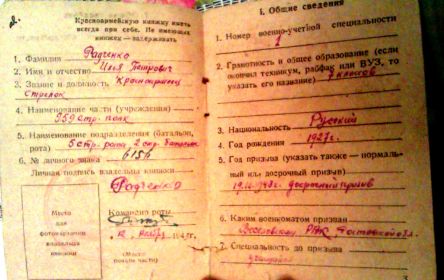 Красноармейскую книжку иметь
всегда при себе. Не имеющих
книжек — задерживать
1. Фамилия Радченко
2. Имя и отчество Илья Петрович
3. Звание и должность Красноармеец
стрелок
4. Наименование части (учреждения)
959 стр. полк
5. Наименование подразделения (батальон,
рота) 5 стр. рота 2 стр. батальон
6. № личного знака 6156
Личная подпись владельца книжки
Радченко
Место
для
фотокарточки
владельца
книжки
Командир роты
12
(Место
печати части)
I. Общие сведения
1. Номер военно-учетной специальности
1
2. Грамотность и общее образование (если
окончил техникум, рабфак или ВУЗ, то
указать его название) классов
3. Национальность Русский
4. Год рождения 1927 г.
5. Год призыва (указать также — нормаль-
ный или досрочный призыв)
досрочный призыв
6. Каким военкоматом призван
РВК Ростовской обл.
7. Специальность до призыва
3